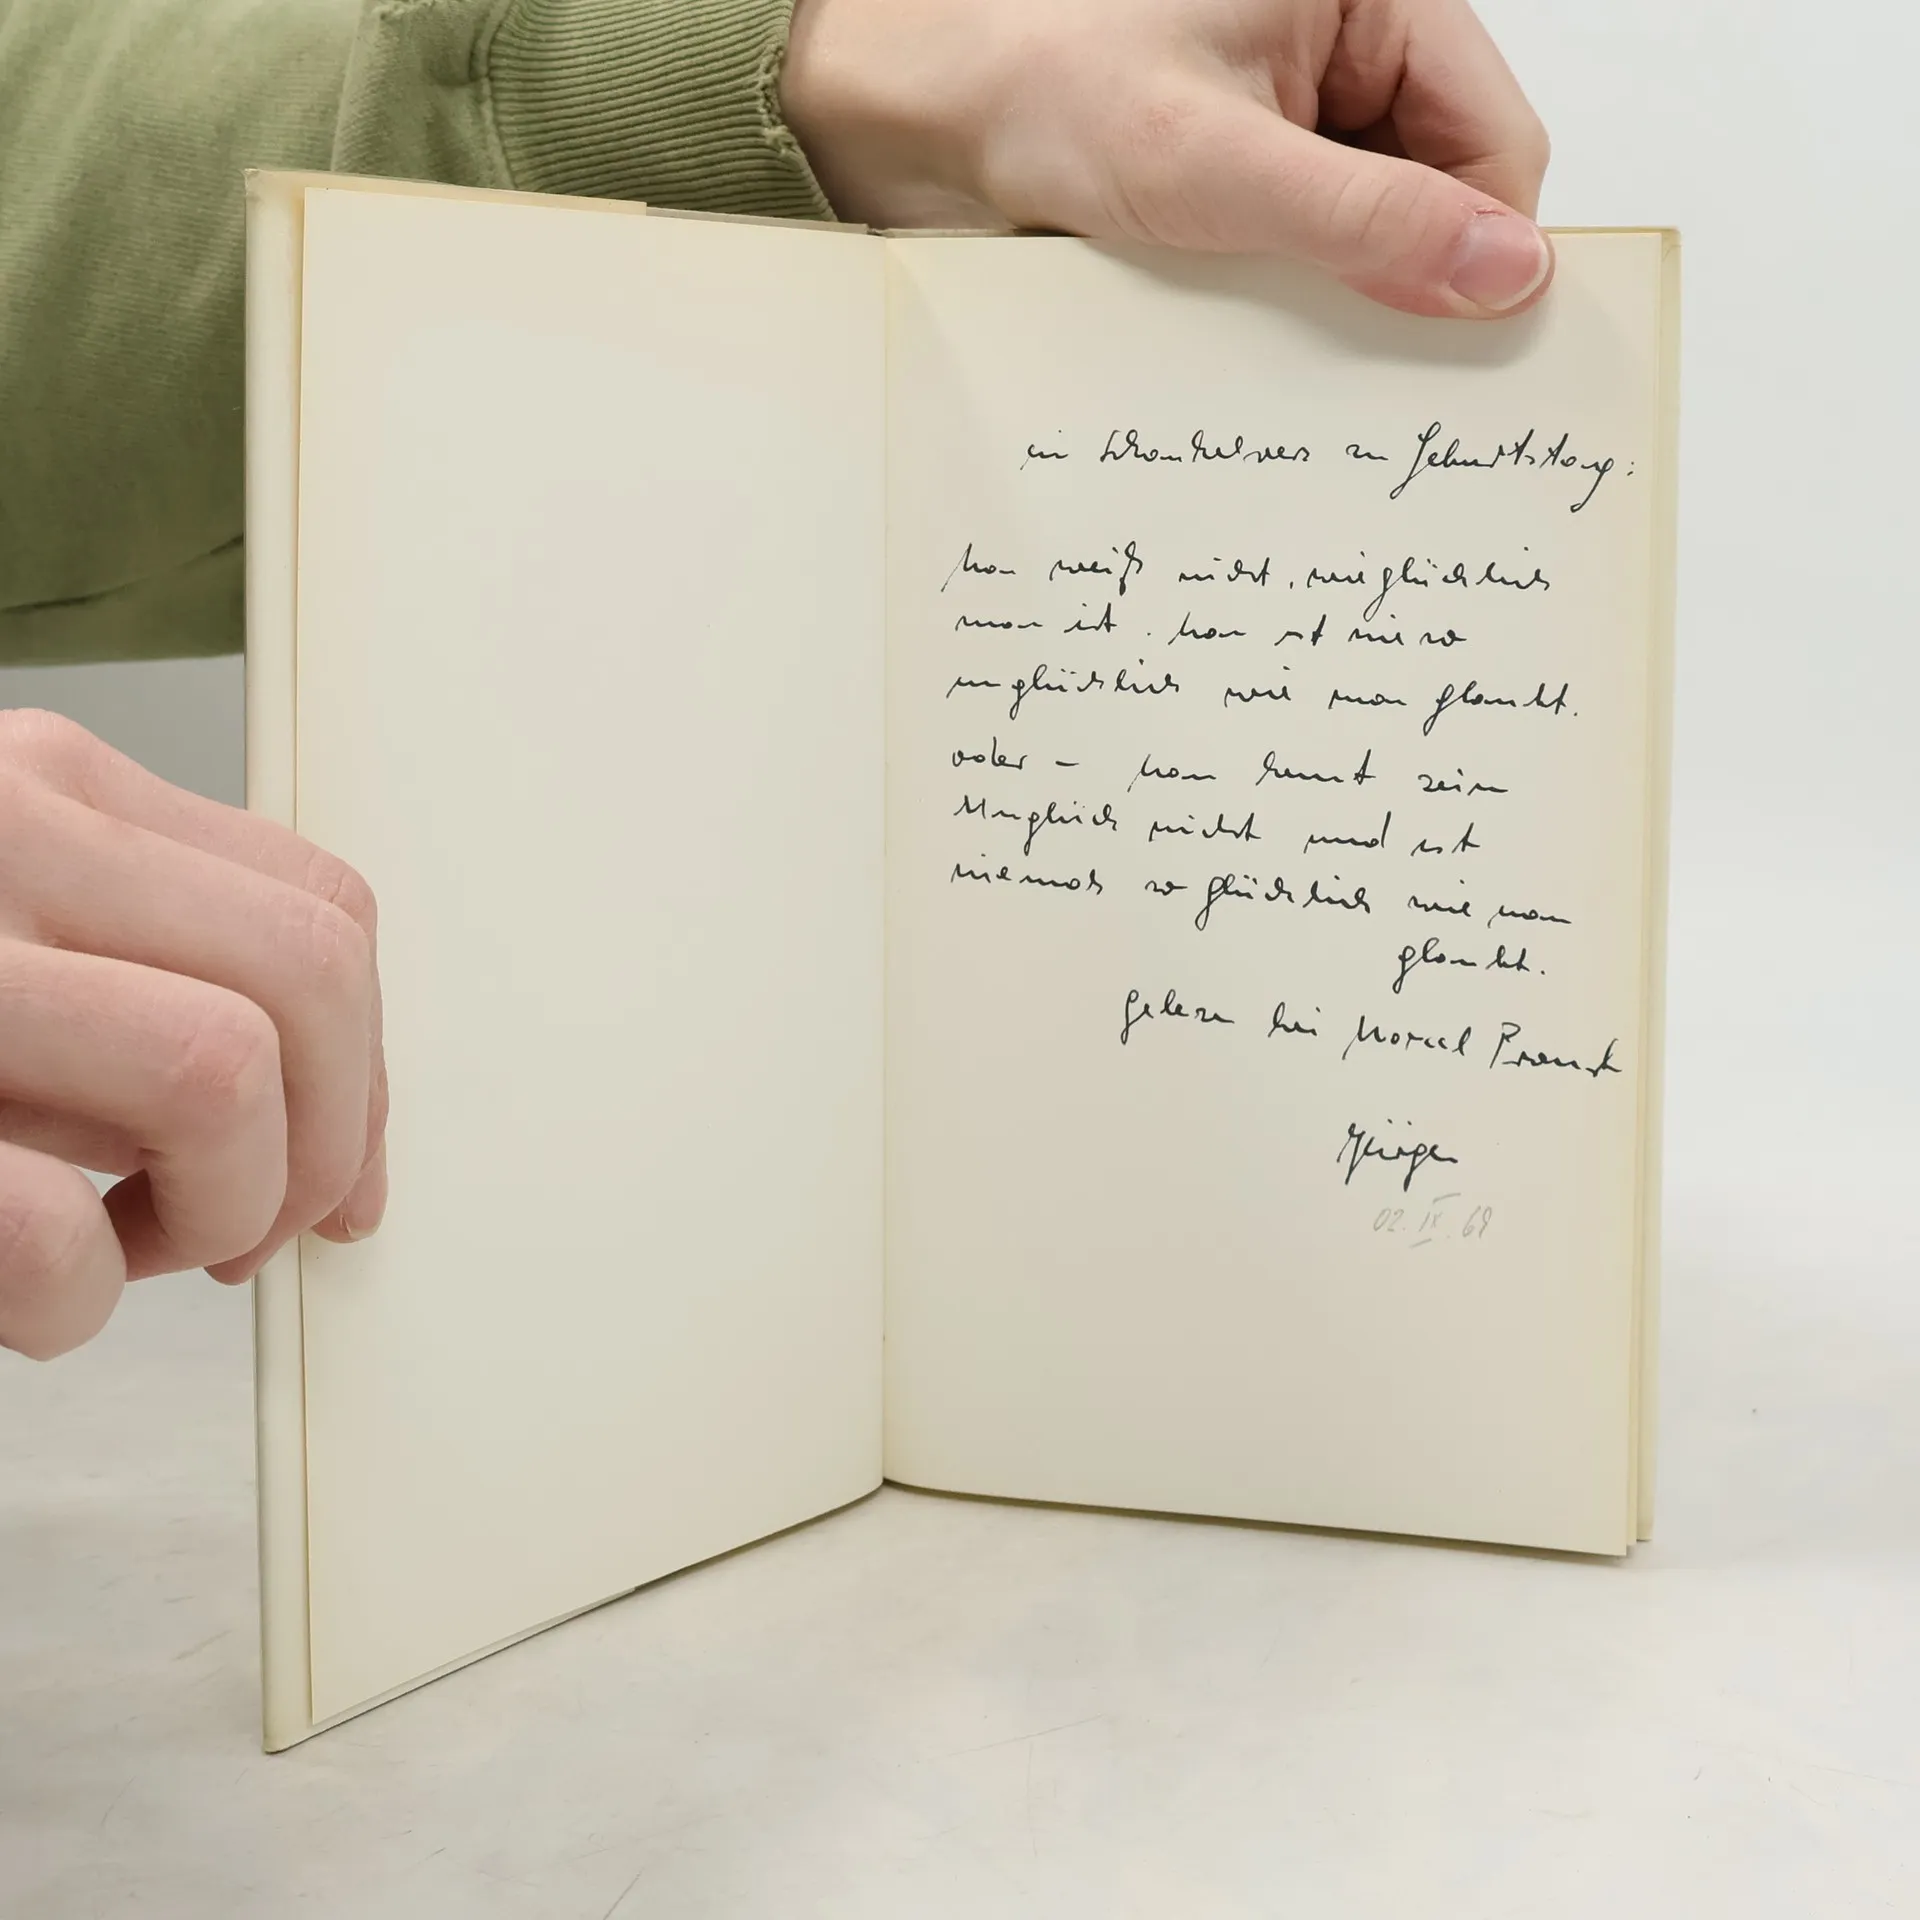 ein Schaukelvers zu Geburtstag:
Man weiß nicht, wie glücklich
man ist. Man ist nie so
unglücklich wie man glaubt.
oder - Man kennt sein
Unglück nicht und ist
niemals so glücklich wie man
glaubt.
Gelesen bei Marcel Proust
Jürgen
02. IX. 69